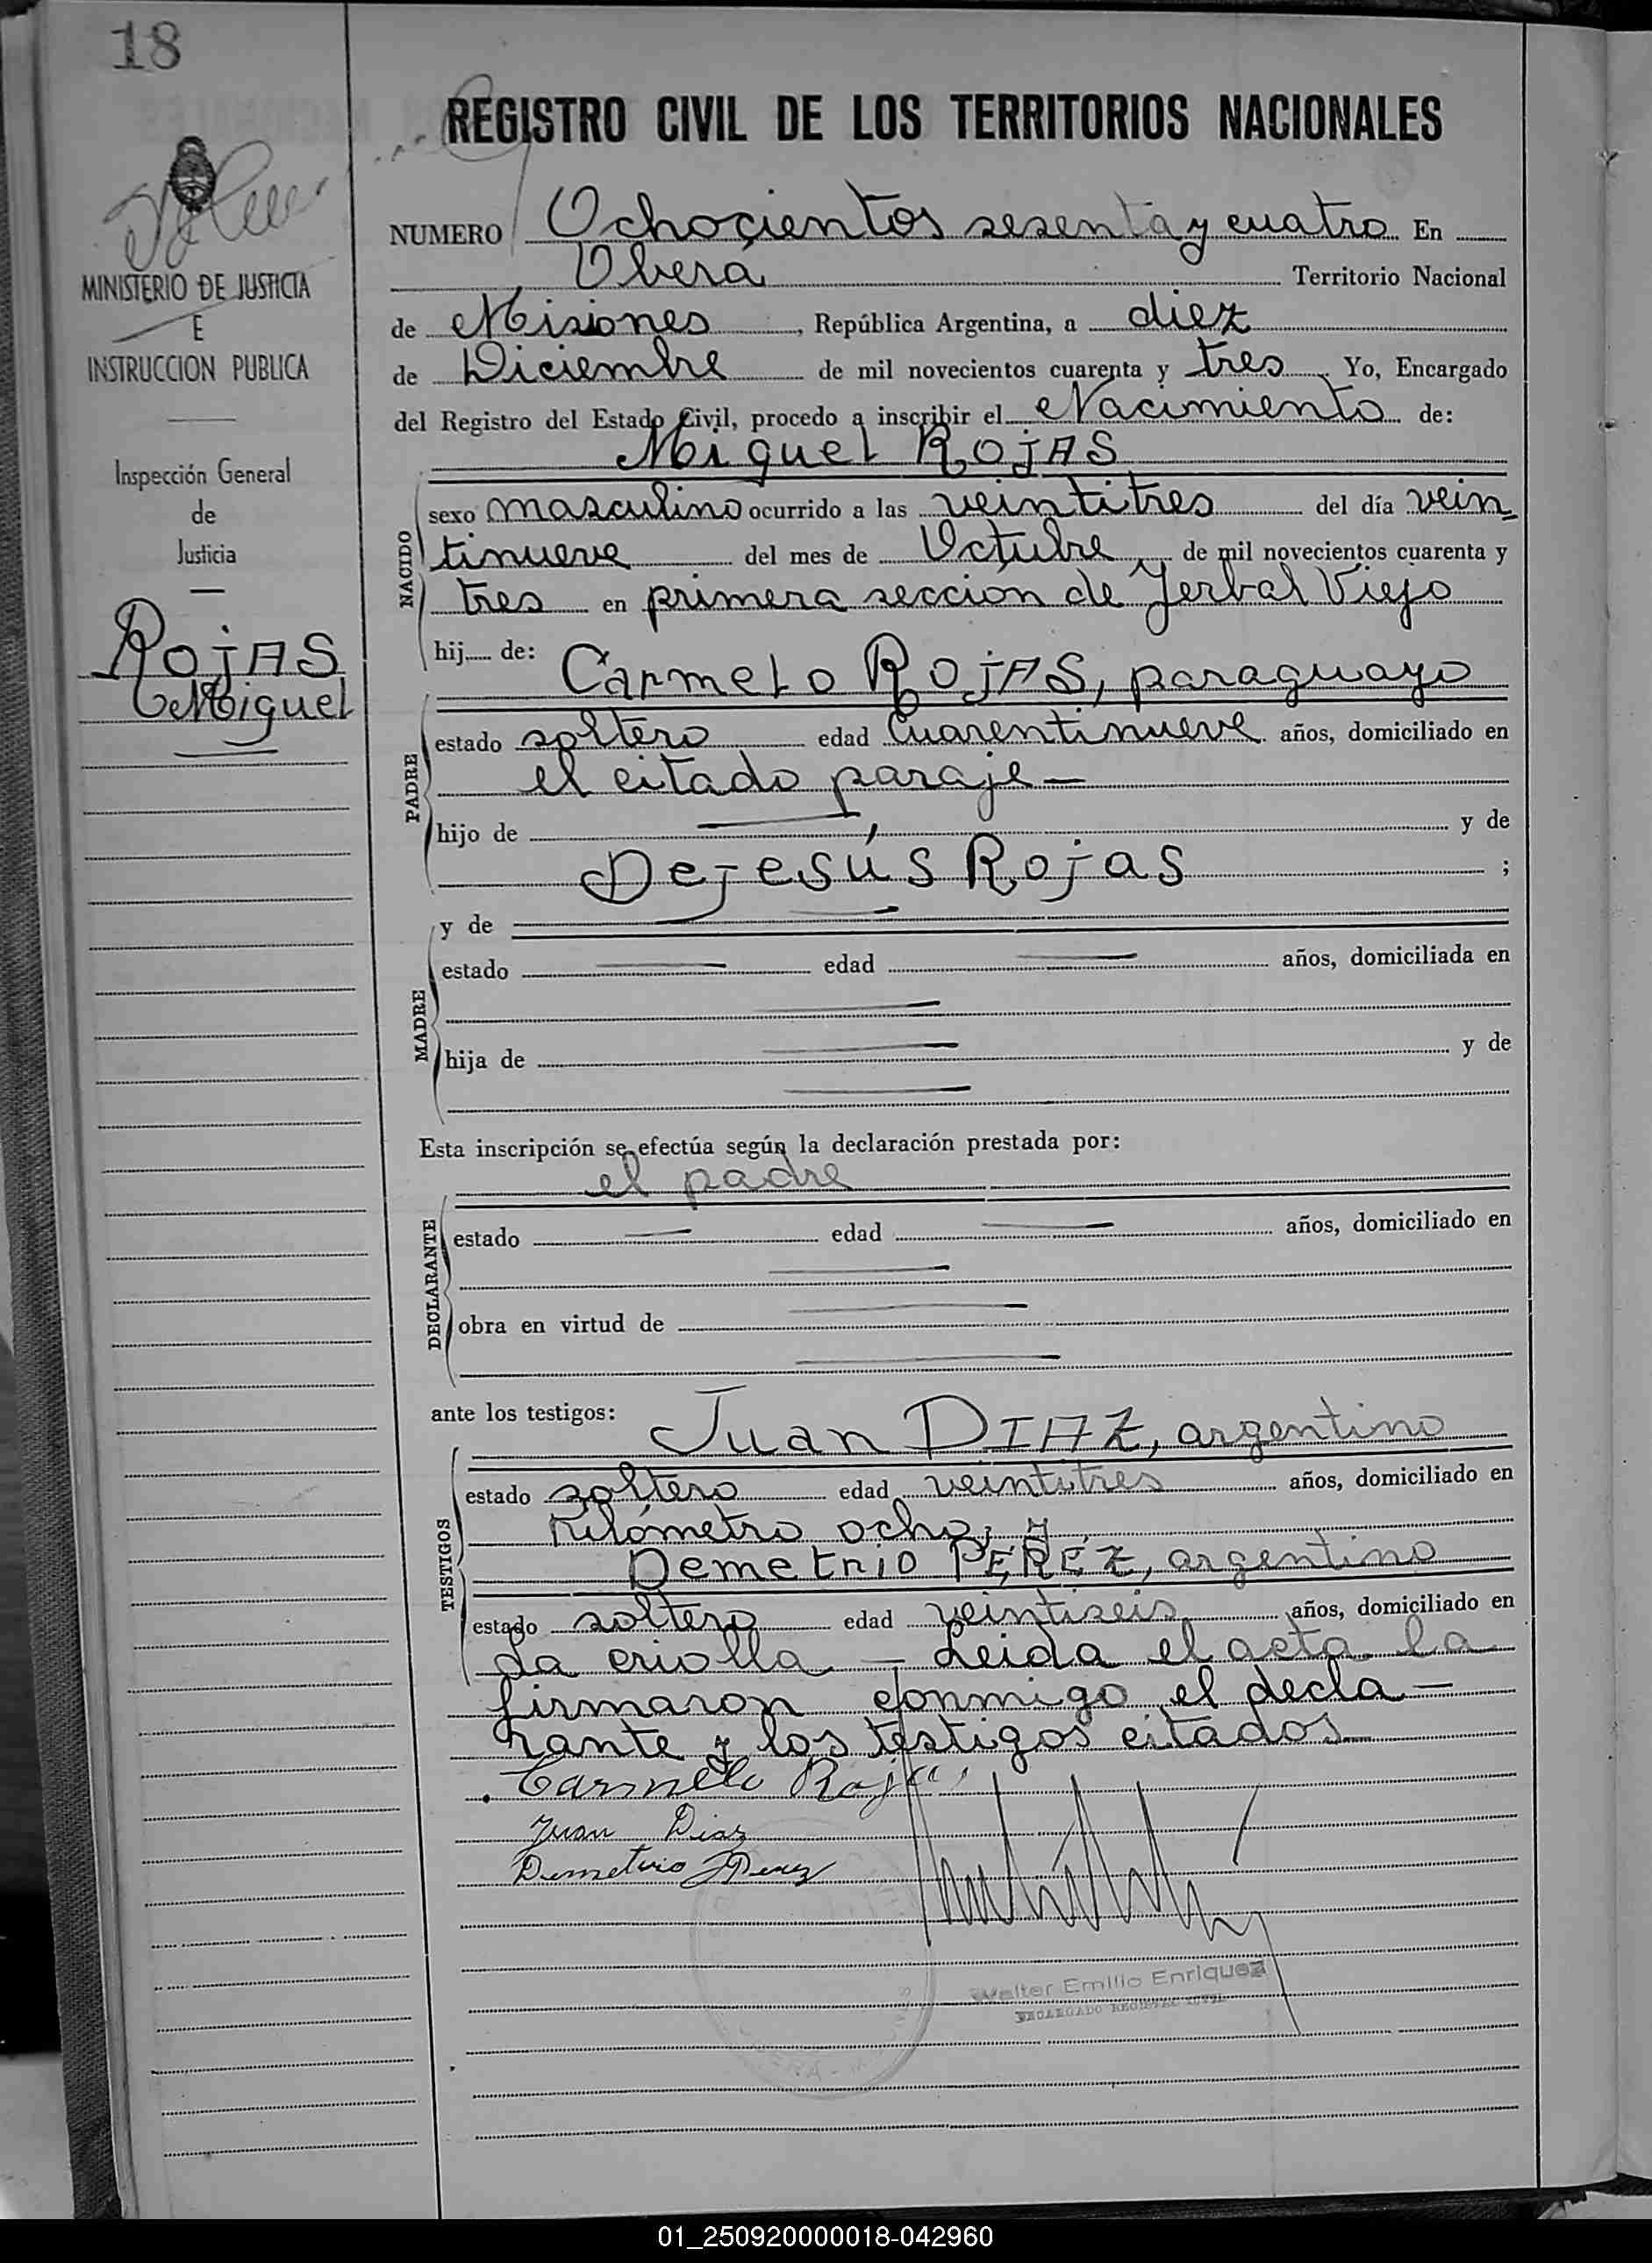 18
REGISTRO CIVIL DE LOS TERRITORIOS NACIONALES
MINISTERIO DE JUSTICIA
E
INSTRUCCION PUBLICA
Inspección General
de
Justicia
Rojas
Miguel
NUMERO Ochocientos sesenta y cuatro En
Oberá Territorio Nacional
de Misiones, República Argentina, a diez
de Diciembre de mil novecientos cuarenta y tres Yo, Encargado
del Registro del Estado Civil, procedo a inscribir el Nacimiento de:
Miguel ROJAS
NACIDO
sexo masculino ocurrido a las veintitres del día vein
tinueve del mes de Octubre de mil novecientos cuarenta y
tres en primera sección de Yerbal Viejo
hij de:
Carmelo ROJAS, paraguayo
PADRE
estado soltero edad Cuarentinueve años, domiciliado en
el citado paraje —
hijo de — y de
Dejesús Rojas ;
MADRE
y de —
estado — edad — años, domiciliada en
—
hija de — y de
—
Esta inscripción se efectúa según la declaración prestada por:
el padre
DECLARANTE
estado — edad — años, domiciliado en
—
obra en virtud de —
—
ante los testigos:
Juan DIAZ, argentino
TESTIGOS
estado soltero edad veintitres años, domiciliado en
Kilómetro ocho; y
Demetrio PÉREZ, argentino
estado soltero edad veintiseis años, domiciliado en
La criolla — Leida el acta la
firmaron conmigo el decla—
rante y los testigos citados
Carmelo Rojas
Juan Diaz
Demetrio Perez
Walter Emilio Enriquez
ENCARGADO REGISTRO CIVIL
01_250920000018-042960